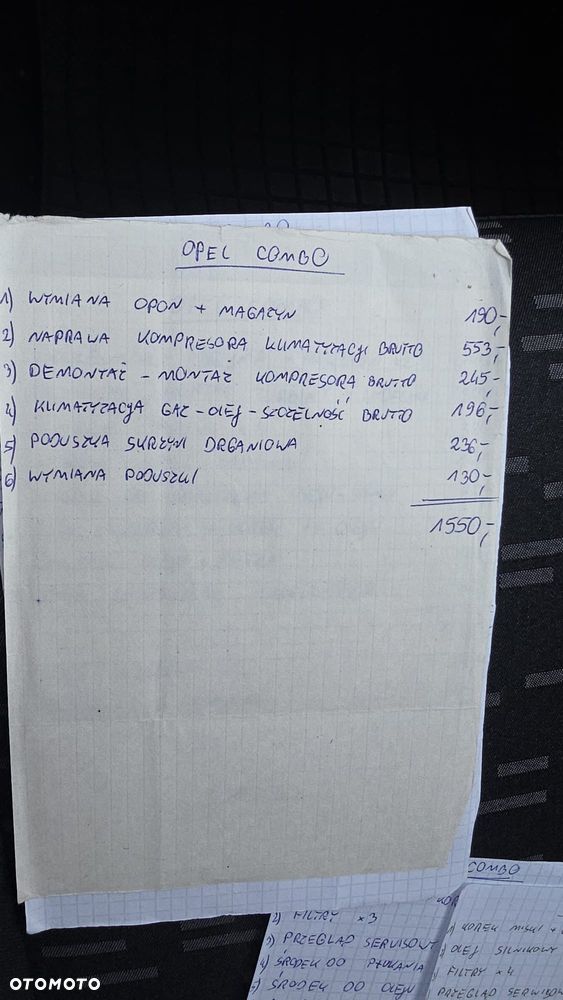 OPEL COMBO
1) WYMIANA OPON + MAGAZYN 190,-
2) NAPRAWA KOMPRESORA KLIMATYZACJI BRUTTO 553,-
3) DEMONTAŻ - MONTAŻ KOMPRESORA BRUTTO 245,-
4) KLIMATYZACJA GAZ - OLEJ - SZCZELNOŚĆ BRUTTO 196,-
5) PODUSZKA SKRZYNI DRGANIOWA 236,-
6) WYMIANA PODUSZKI 130,-
1550,-
COMBO
2) FILTRY x 3
3) PRZEGLĄD SERWISOWY
4) ŚRODEK DO PŁUKANIA
5) ŚRODEK DO OLEJU
1) KOREK MISKI +
2) OLEJ SILNIKOWY
3) FILTRY x 4
PRZEGLĄD SERWISOWY
OTOMOTO